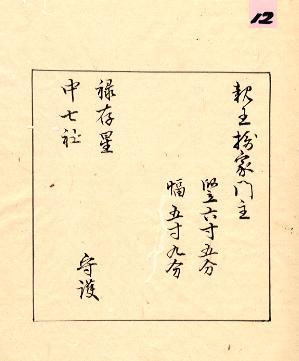 12
親王摂家門主
竪六寸五分
幅五寸九分
禄存星
中七祉
守護